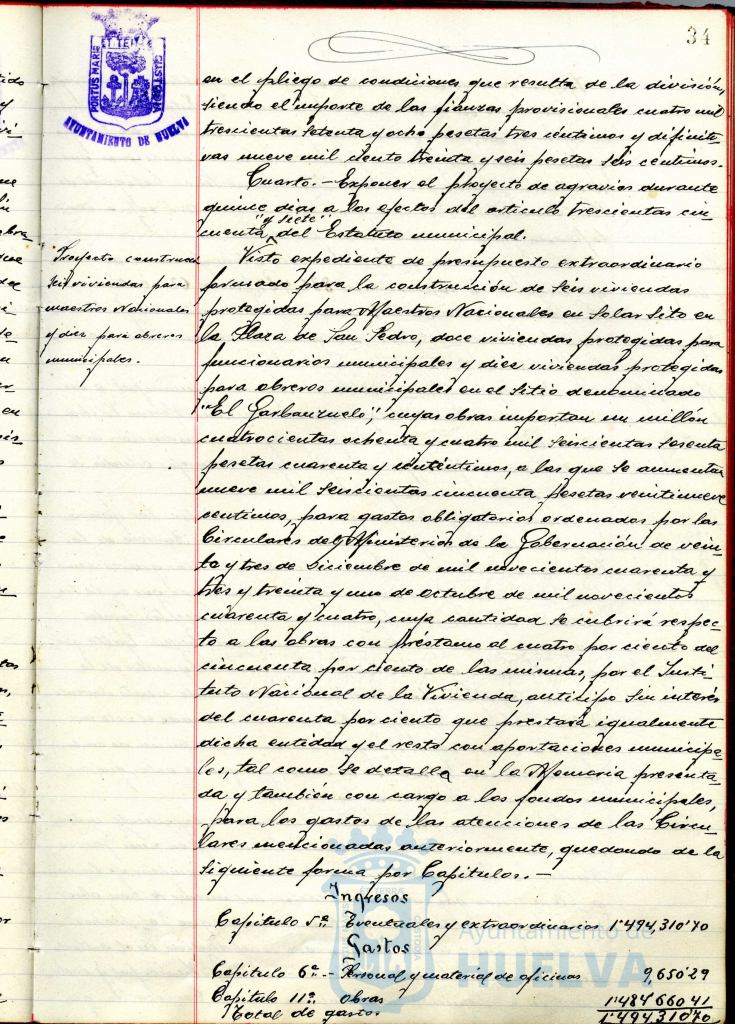 34
PORTUS MARIS ET TERRAE CUSTODIA
AYUNTAMIENTO DE HUELVA
en el pliego de condiciones que resulta de la división,
siendo el importe de las fianzas provisionales cuatro mil
trescientas setenta y ocho pesetas tres céntimos y difiniti-
vas nueve mil ciento treinta y seis pesetas seis centimos.
Cuarto.- Exponer el proyecto de agravios durante
quince dias a los efectos del articulo trescientas cin-
"y siete"
cuenta, del Estatuto municipal.
Proyecto construcn
seis viviendas para
maestros Nacionales
y diez para obreros
municipales.
Visto expediente de presupuesto extraordinario
formado para la construcción de seis viviendas
protegidas para Maestros Nacionales en Solar sito en
la Plaza de San Pedro, doce viviendas protegidas para
funcionarios municipales y diez viviendas protegidas
para obreros municipales en el sitio denominado
"El Garbanzuelo", cuyas obras importan un millón
cuatrocientas ochenta y cuatro mil seiscientas sesenta
pesetas cuarenta y un céntimos, a las que se aumentan
nueve mil seiscientas cincuenta pesetas veintinueve
centimos, para gastos obligatorios ordenados por las
Circulares del Ministerio de la Gobernación de vein-
te y tres de Diciembre de mil novecientos cuarenta y
tres y treinta y uno de octubre de mil novecientos
cuarenta y cuatro, cuya cantidad se cubrirá respec-
to a las obras con préstamo al cuatro por ciento del
cincuenta por ciento de las mismas, por el Insti-
tuto Nacional de la Vivienda, anticipo sin interés
del cuarenta por ciento que prestará igualmente
dicha entidad y el resto con aportaciones municipa-
les, tal como se detalla en la Memoria presenta-
da y también con cargo a los fondos municipales,
para los gastos de las atenciones de las Circu-
lares mencionadas anteriormente, quedando de la
siguiente forma por Capitulos.-
Ingresos
Capitulo 5º Eventuales y extraordinarios 1'494,310'70
Gastos
Capitulo 6º.- Personal y material de oficinas 9,650'29
Capitulo 11º Obras 1'484 660 41
Total de gastos 1'494,310'70
Ayuntamiento de
HUELVA